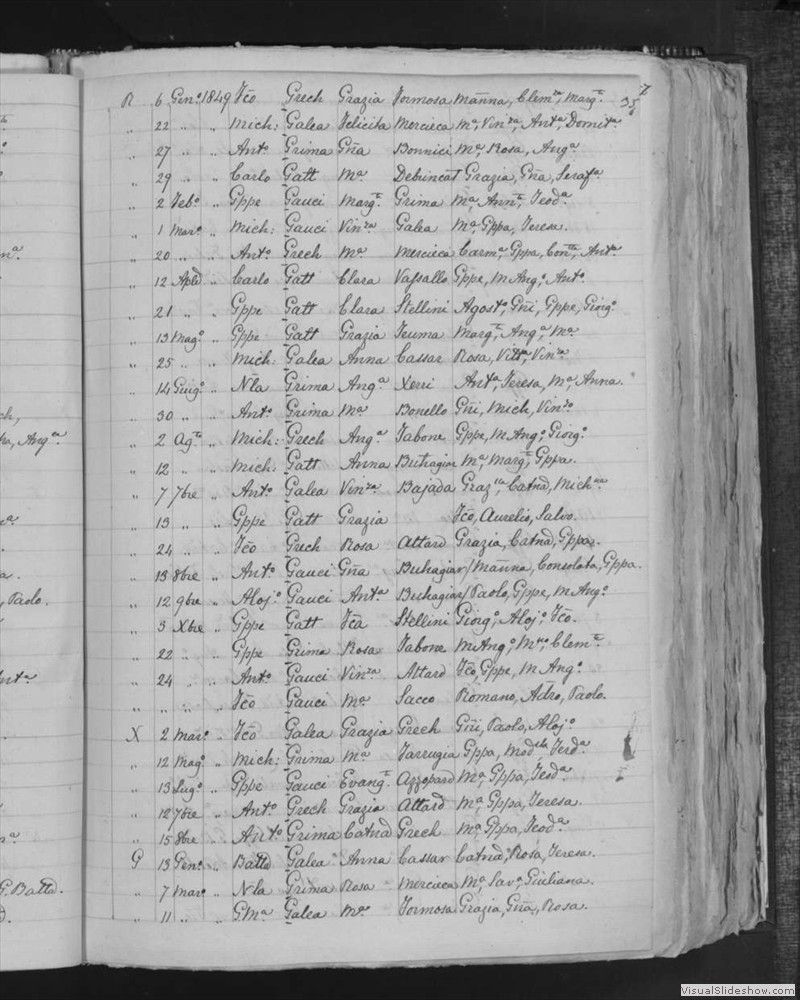 7
356
R 6 Gen.o 1849 Fc̃o Grech Grazia Formosa Mãnna, Clem.za, Marg.ta
„ 22 „ „ Mich: Galea Felicita Mercieca M.a, Vin.za, Ant.a, Domit.a
„ 27 „ „ Ant.o Grima Gña Bonnici M.a, Rosa, Ang.a
„ 29 „ „ Carlo Gatt M.a Debincat Grazia, Gña, Seraf.a
„ 2 Feb.o „ Gppe Gauci Marg.ta Grima M.a, Ann.ta, Teod.a
„ 1 Mar.o „ Mich: Gauci Vin.za Galea M.a, Gppa, Teresa.
„ 20 „ „ Ant.o Grech M.a Mercieca Carm.a, Gppa, Con.tta, Ant.a
„ 12 Aple „ Carlo Gatt Clara Vassallo Gppe, M Ang.o, Ant.o
„ 21 „ „ Gppe Gatt Clara Stellini Agost.o, Gñi, Gppe, Giorg.o
„ 13 Mag.o „ Gppe Gatt Grazia Teuma Marg.ta, Ang.a, M.a
„ 25 „ „ Mich: Galea Anna Cassar Rosa, Vitt.a, Vin.za
„ 14 Giug.o „ Nla Grima Ang.a Xerri Ant.a, Teresa, M.a, Anna.
„ 30 „ „ Ant.o Grima M.a Bonello Gñi, Mich, Vin.zo
„ 2 Ag.to „ Mich: Grech Ang.a Tabone Gppe, M Ang.o, Giorg.o
„ 12 „ „ Mich: Gatt Anna Buhagiar M.a, Marg.ta, Gppa.
„ 7 7bre „ Ant.o Galea Vin.za Bajada Graz.lla, Catna, Mich.na
„ 13 „ „ Gppe Gatt Grazia Fc̃o, Aurelio, Salvo.
„ 24 „ „ Fc̃o Grech Rosa Attard Grazia, Catna, Gppa.
„ 13 8bre „ Ant.o Gauci Gña Buhagiar Mãnna, Consolata, Gppa.
„ 12 9bre „ Aloj.o Gauci Ant.a Buhagiar Paolo, Gppe, M Ang.o
„ 3 Xbre „ Gppe Gatt Fc̃a Stellini Giorg.o, Aloj.o, Fc̃o.
„ 22 „ „ Gppe Grima Rosa Tabone M Ang.o, Clem.te
„ 24 „ „ Ant.o Gauci Vin.za Attard Fc̃o, Gppe, M Ang.o
„ „ „ „ Fc̃o Gauci M.a Sacco Romano, Paolo.
X 2 Mar.o „ Fc̃o Galea Grazia Grech Gñi, Paolo, Aloj.o
„ 12 Mag.o „ Mich: Grima M.a Farrugia Gppa, Mod.sta, Ferd.a
„ 13 Lug.o „ Gppe Gauci Evang.ta Azzopard M.a, Gppa, Teod.a
„ 12 7bre „ Ant.o Grech Grazia Attard M.a, Gppa, Teresa.
„ 15 8bre „ Ant.o Grima Catna Grech M.a, Gppa, Teod.a
G 13 Gen.o „ Batta Galea Anna Cassar Catna, Rosa, Teresa.
„ 7 Mar.o „ Nla Grima Rosa Mercieca M.a, Sav.a, Giuliana.
„ 11 „ „ G.M.a Galea M.a Formosa Grazia, Gña, Rosa.
VisualSlideshow.com